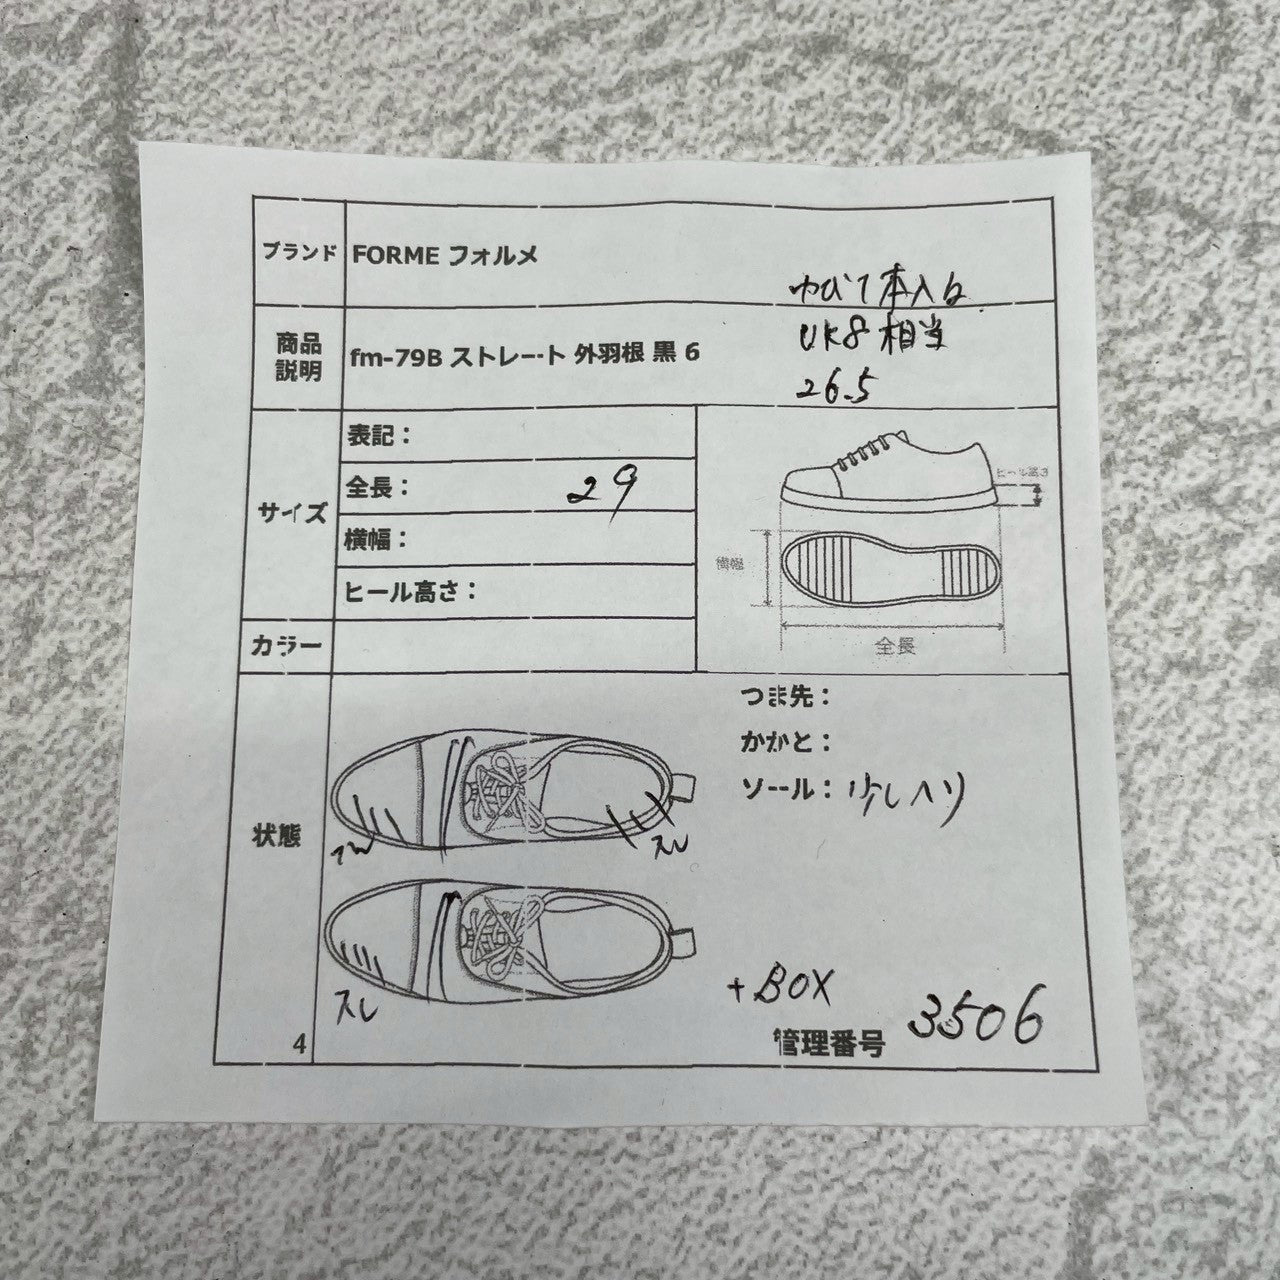 ブランド FORME フォルメ
ゆび1本入る
商品説明 fm-79B ストレート 外羽根 黒 6
UK8 相当
26.5
サイズ
表記：
全長： 29
横幅：
ヒール高さ：
ヒール高さ
横幅
全長
カラー
状態
つま先：
かかと：
ソール： 少しヘリ
スレ
スレ
スレ
+BOX
管理番号 3506
4